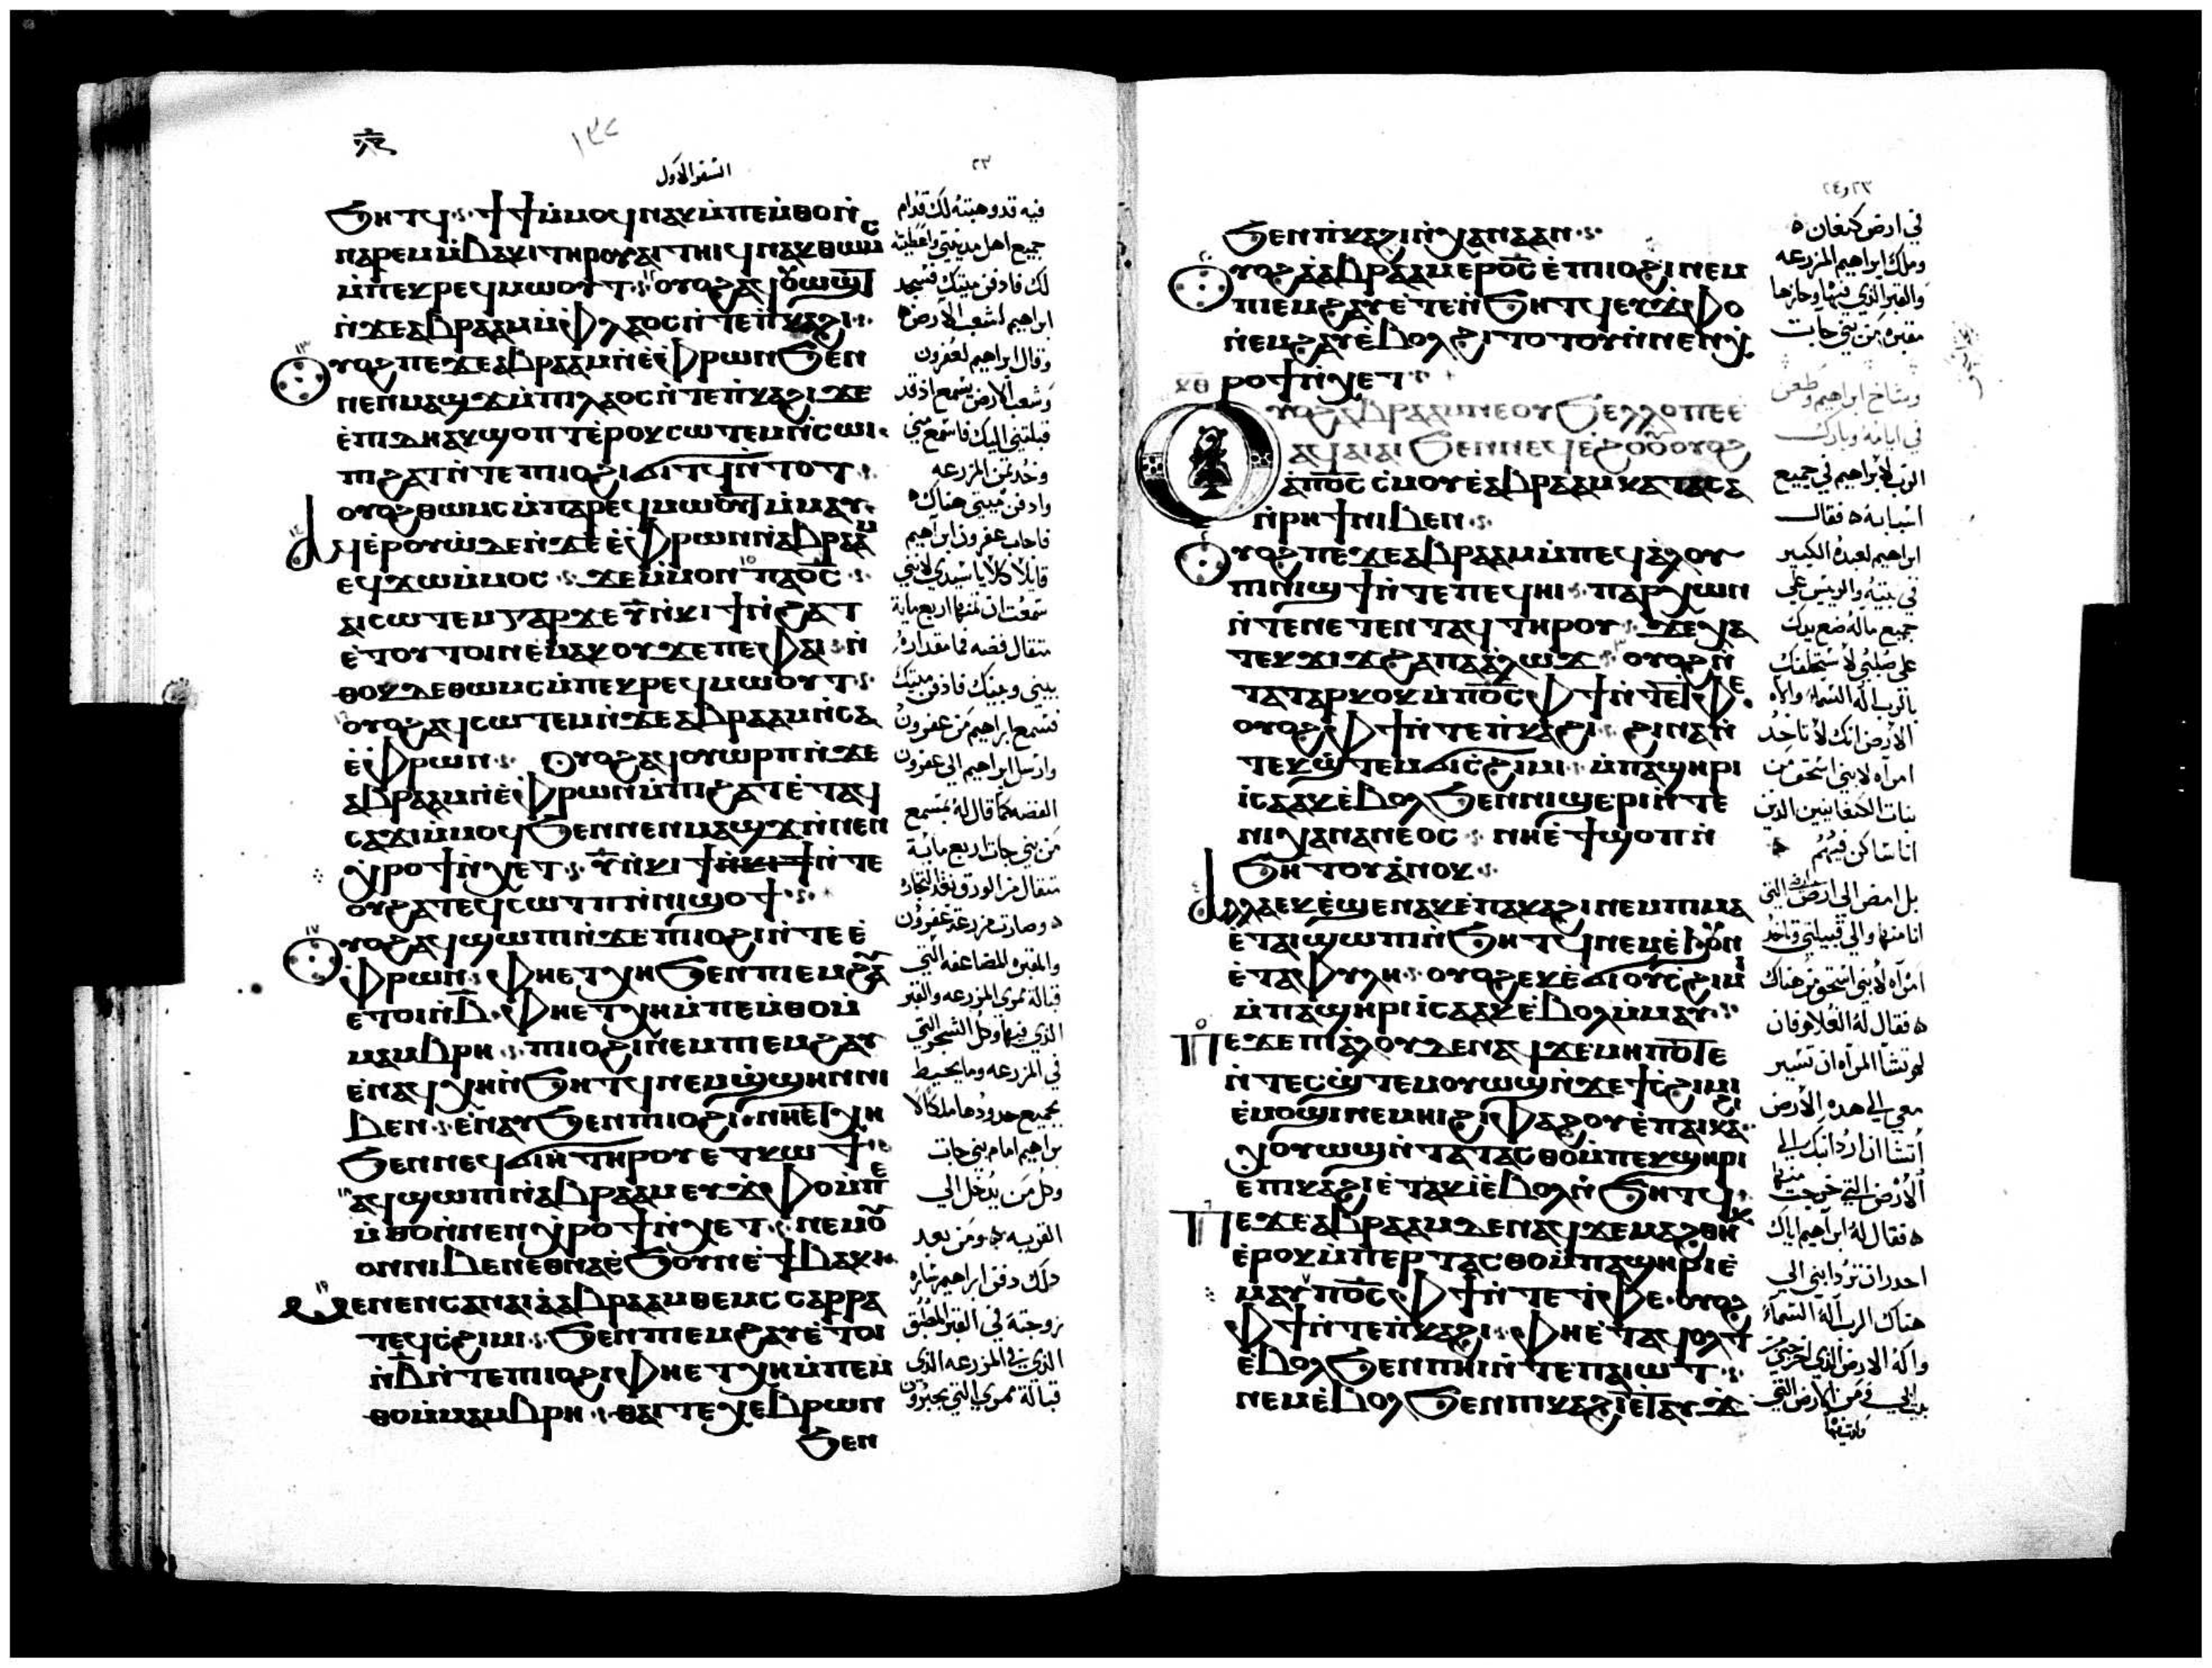 ١٣٧
السفر الاول
٢٣
ϧⲏⲧϥ ϯϯⲙ̀ⲙⲟϥ ⲛⲁⲕ ⲙ̀ⲡⲉⲙ̀ⲑⲟ ⲛ̀
ⲛⲁⲣⲉⲙⲙ̀ⲃⲁⲕⲓ ⲧⲏⲣⲟⲩ ⲁⲓⲧⲏⲓϥ ⲛⲁⲕ ⲑⲱⲙⲥ
ⲙ̀ⲡⲉⲕⲣⲉϥⲙⲱⲟⲩⲧ ⲟⲩⲟϩ ⲁϥⲟⲩⲱϣⲧ
ⲛ̀ϫⲉ ⲁⲃⲣⲁⲁⲙ ⲙ̀ⲫⲗⲁⲟⲥ ⲛ̀ⲧⲉ ⲡ̀ⲕⲁϩⲓ
ⲟⲩⲟϩ ⲡⲉϫⲉ ⲁⲃⲣⲁⲁⲙ ⲛ̀ⲉ̀ⲫⲣⲱⲛ ϧⲉⲛ
ⲛⲉⲛⲙⲁϣϫ ⲙ̀ⲡⲓⲗⲁⲟⲥ ⲛ̀ⲧⲉ ⲡ̀ⲕⲁϩⲓ ϫⲉ
ⲉ̀ⲡⲓⲇⲏ ⲁⲕϣⲟⲡⲧ ⲉ̀ⲣⲟⲕ ⲥⲱⲧⲉⲙ ⲛ̀ⲥⲱⲓ
ⲡⲓϩⲁⲧ ⲛ̀ⲧⲉ ⲡⲓⲟϩⲓ ϭⲓⲧϥ ⲛ̀ⲧⲟⲧ
ⲟⲩⲟϩ ⲑⲱⲙⲥ ⲙ̀ⲡⲁⲣⲉϥⲙⲱⲟⲩⲧ ⲙ̀ⲙⲁⲩ
ⲁϥⲉⲣⲟⲩⲱ̀ ⲇⲉ ⲛ̀ϫⲉ ⲉ̀ⲫⲣⲱⲛ ⲛ̀ⲁⲃⲣⲁⲁⲙ
ⲉϥϫⲱ ⲙ̀ⲙⲟⲥ ϫⲉ ⲙ̀ⲙⲟⲛ ⲡⲁⲟ̅ⲥ̅
ⲁⲓⲥⲱⲧⲉⲙ ⲅⲁⲣ ϫⲉ ⲩ̅ ⲛ̀ⲕⲓϯ ⲛ̀ϩⲁⲧ
ⲉ̀ⲧⲟⲩⲧⲱⲓ ⲛⲉⲙⲁⲕ ⲟⲩ ϫⲉ ⲡⲉ ⲫⲁⲓ ⲛ̀
ⲑⲟⲕ ⲇⲉ ⲑⲱⲙⲥ ⲙ̀ⲡⲉⲕⲣⲉϥⲙⲱⲟⲩⲧ
ⲟⲩⲟϩ ⲁϥⲥⲱⲧⲉⲙ ⲛ̀ϫⲉ ⲁⲃⲣⲁⲁⲙ ⲛ̀ⲥⲁ
ⲉ̀ⲫⲣⲱⲛ ⲟⲩⲟϩ ⲁϥⲟⲩⲱⲣⲡ ⲛ̀ϫⲉ
ⲁⲃⲣⲁⲁⲙ ⲛ̀ⲉ̀ⲫⲣⲱⲛ ⲙ̀ⲡⲓϩⲁⲧ ⲉ̀ⲧⲁϥ
ⲥⲁϫⲓ ⲙ̀ⲙⲟϥ ϧⲉⲛ ⲛⲉⲛⲙⲁϣϫ ⲛ̀ⲛⲉⲛ
ϣⲏⲣⲓ ⲛ̀ⲭⲉⲧ ⲩ̅ ⲛ̀ⲕⲓϯ ⲛ̀ⲧⲉ
ⲟⲩϩⲁⲧ ⲉϥⲥⲱⲧⲡ ⲛ̀ⲛⲓϣⲟϯ
ⲟⲩⲟϩ ⲁϥϣⲱⲡⲓ ⲛ̀ϫⲉ ⲡⲓⲟϩⲓ ⲛ̀ⲧⲉ ⲉ̀
ⲫⲣⲱⲛ ⲫⲏⲉⲧⲭⲏ ϧⲉⲛ ⲡⲓⲉⲙϩⲁⲩ
ⲉⲧⲟⲓ ⲛ̀ⲃ̅ ⲫⲏⲉⲧⲭⲏ ⲙ̀ⲡⲉⲙ̀ⲑⲟ ⲙ̀
ⲙⲁⲙⲃⲣⲏ ⲡⲓⲟϩⲓ ⲛⲉⲙ ⲡⲓⲉⲙϩⲁⲩ
ⲉ̀ⲛⲁϥⲭⲏ ⲛ̀ϧⲏⲧϥ ⲛⲉⲙ ϣ̀ϣⲏⲛ ⲛⲓ
ⲃⲉⲛ ⲉ̀ⲛⲁⲩ ϧⲉⲛ ⲡⲓⲟϩⲓ ⲛⲏⲉⲧⲭⲏ
ϧⲉⲛ ⲛⲉϥϭⲓⲏ ⲧⲏⲣⲟⲩ ⲉⲧⲕⲱϯ
ⲁϥϣⲱⲡⲓ ⲛ̀ⲁⲃⲣⲁⲁⲙ ⲉⲩϫ̀ⲫⲟ ⲙ̀ⲡⲉ
ⲙ̀ⲑⲟ ⲛ̀ⲛⲉⲛϣⲏⲣⲓ ⲛ̀ⲭⲉⲧ ⲛⲉⲙ ⲟⲩ
ⲟⲛ ⲛⲓⲃⲉⲛ ⲉⲑⲛⲁⲉ̀ϧⲟⲩⲛ ⲉ̀ϯⲃⲁⲕⲓ
ⲙⲉⲛⲉⲛⲥⲁ ⲛⲁⲓ ⲁ̀ ⲁⲃⲣⲁⲁⲙ ⲑⲉⲙⲥ ⲥⲁⲣⲣⲁ
ⲧⲉϥⲥ̀ϩⲓⲙⲓ ϧⲉⲛ ⲡⲓⲉⲙϩⲁⲩ ⲉ̀ⲧⲟⲓ
ⲛ̀ⲃ̅ ⲛ̀ⲧⲉ ⲡⲓⲟϩⲓ ⲫⲏⲉⲧⲭⲏ ⲙ̀ⲡⲉⲙ̀
ⲑⲟ ⲙ̀ⲙⲁⲙⲃⲣⲏ ⲑⲁⲓ ⲧⲉ ⲭⲉⲃⲣⲱⲛ
ϧⲉⲛ
فيه قد وهبته لك قدام
جميع اهل مدينتي واعطيته
لك فادفن ميتك فسجد
ابراهيم لشعب الارض
وقال ابراهيم لعفرون
وشعب الارض يسمع اذ قد
قبلتني اليك فاسمع مني
وخذ ثمن المزرعه
وادفن ميتي هناك
فاجاب عفرون ابراهيم
قايلا كلا يا سيدي لانني
سمعت ان ثمنها اربع ماية
مثقال فضه فما مقداره
بيني وبينك فادفن ميتك
فسمع ابراهيم من عفرون
وارسل ابراهيم الي عفرون
الفضه كما قال له بمسمع
من بني حات اربع ماية
مثقال من الورق نقد التجار
وصارت مزرعة عفرون
والمقبره المضاعفه التي
قبالة ممري المزرعه والقبر
الذي فيها وكل الشجر التي
في المزرعه وما يحيط
بجميع حدودها ملكا لا
براهيم امام بني حات
وكل من يدخل الي
القريه ومن بعد
ذلك دفن ابراهيم ساره
زوجته في القبر المطبق
الذي في المزرعه الذي
قبالة ممري التي بحبرون
٢٣ و ٢٤
ϧⲉⲛ ⲡ̀ⲕⲁϩⲓ ⲛ̀ⲭⲁⲛⲁⲁⲛ
ⲟⲩⲟϩ ⲁ̀ ⲁⲃⲣⲁⲁⲙ ⲉⲣⲟ̅ⲥ̅ ⲉ̀ⲡⲓⲟϩⲓ ⲛⲉⲙ
ⲡⲓⲉⲙϩⲁⲩ ⲉ̀ⲧⲉⲛ̀ϧⲏⲧϥ ⲉⲩϫ̀ⲫⲟ
ⲛ̀ⲉⲙϩⲁⲩ ⲉ̀ⲃⲟⲗ ϩⲓⲧⲟⲧⲟⲩ ⲛ̀ⲛⲉⲛϣ
ⲭⲑ
ⲟⲩⲟϩ ⲁⲃⲣⲁⲁⲙ ⲛⲉ ⲟⲩϧⲉⲗⲗⲟ ⲡⲉ ⲉ̀
ⲁϥⲁⲓⲁⲓ ϧⲉⲛ ⲛⲉϥⲉ̀ϩⲟⲟⲩ ⲟⲩⲟϩ
ⲁ̀ ⲡⲟ̅ⲥ̅ ⲥⲙⲟⲩ ⲉ̀ⲁⲃⲣⲁⲁⲙ ⲕⲁⲧⲁ ⲥⲁ
ⲛ̀ⲣⲏϯ ⲛⲓⲃⲉⲛ
ⲟⲩⲟϩ ⲡⲉϫⲉ ⲁⲃⲣⲁⲁⲙ ⲙ̀ⲡⲉϥⲁ̀ⲗⲟⲩ
ⲡⲓⲛⲓϣϯ ⲛ̀ⲧⲉ ⲡⲉϥⲏⲓ ⲡⲁⲣⲭⲱⲛ
ⲛ̀ⲧⲉ ⲛⲉⲧⲉⲛⲧⲁϥ ⲧⲏⲣⲟⲩ ϫⲉ ⲭⲁ
ⲧⲉⲕϫⲓϫ ϩⲁ ⲡⲁⲁ̀ⲗⲱϫ ⲟⲩⲟϩ ⲛ̀
ⲧⲁⲧⲁⲣⲕⲟⲕ ⲙ̀ⲡⲟ̅ⲥ̅ ⲫϯ ⲛ̀ⲧⲉ ⲧ̀ⲫⲉ
ⲟⲩⲟϩ ⲫϯ ⲛ̀ⲧⲉ ⲡ̀ⲕⲁϩⲓ ϩⲓⲛⲁ ⲛ̀
ⲧⲉⲕϣ̀ⲧⲉⲙϭⲓ ⲥ̀ϩⲓⲙⲓ ⲙ̀ⲡⲁϣⲏⲣⲓ
ⲓⲥⲁⲁⲕ ⲉ̀ⲃⲟⲗ ϧⲉⲛ ⲛⲓϣⲉⲣⲓ ⲛ̀ⲧⲉ
ⲛⲓⲭⲁⲛⲁⲛⲉⲟⲥ ⲛⲏⲉ̀ϯϣⲟⲡ ⲛ̀
ϧⲏⲧⲟⲩ ⲁ̀ⲛⲟⲕ
ⲁⲗⲗⲁ ⲉⲕⲉ̀ϣⲉⲛⲁⲕ ⲉ̀ⲡⲁⲕⲁϩⲓ ⲛⲉⲙ ⲡⲓⲙⲁ
ⲉ̀ⲧⲁⲓϣⲱⲡⲓ ⲛ̀ϧⲏⲧϥ ⲛⲉⲙ ⲉ̀ⲃⲟⲗϧⲉⲛ
ⲉ̀ⲧⲁⲫⲩⲗⲏ ⲟⲩⲟϩ ⲉⲕⲉ̀ϭⲓ ⲟⲩⲥ̀ϩⲓⲙⲓ
ⲙ̀ⲡⲁϣⲏⲣⲓ ⲓⲥⲁⲁⲕ ⲉ̀ⲃⲟⲗ ⲙ̀ⲙⲁⲩ
ⲡⲉϫⲉ ⲡⲓⲁ̀ⲗⲟⲩ ⲇⲉ ⲛⲁϥ ϫⲉ ⲙⲏⲡⲟⲧⲉ
ⲛ̀ⲧⲉⲥϣ̀ⲧⲉⲙⲟⲩⲱϣ ⲛ̀ϫⲉ ϯⲥ̀ϩⲓⲙⲓ
ⲉ̀ⲙⲟϣⲓ ⲛⲉⲙⲏⲓ ϩⲓⲫⲁϩⲟⲩ ⲉ̀ⲡⲁⲓⲕⲁϩⲓ
ⲭⲟⲩⲱϣ ⲛ̀ⲧⲁⲧⲁⲥⲑⲟ ⲙ̀ⲡⲉⲕϣⲏⲣⲓ
ⲉ̀ⲡⲓⲕⲁϩⲓ ⲉ̀ⲧⲁⲕⲓ̀ ⲉ̀ⲃⲟⲗ ⲛ̀ϧⲏⲧϥ
ⲡⲉϫⲉ ⲁⲃⲣⲁⲁⲙ ⲇⲉ ⲛⲁϥ ϫⲉ ⲙⲁϩⲑⲏⲕ
ⲉ̀ⲣⲟⲕ ⲙ̀ⲡⲉⲣⲧⲁⲥⲑⲟ ⲙ̀ⲡⲁϣⲏⲣⲓ ⲉ̀
ⲙⲁⲩ ⲡⲟ̅ⲥ̅ ⲫϯ ⲛ̀ⲧⲉ ⲧ̀ⲫⲉ ⲟⲩⲟϩ
ⲫϯ ⲛ̀ⲧⲉ ⲡ̀ⲕⲁϩⲓ ⲫⲏⲉ̀ⲧⲁϥⲟⲗⲧ
ⲉ̀ⲃⲟⲗ ϧⲉⲛ ⲡⲏⲓ ⲛ̀ⲧⲉ ⲡⲁⲓⲱⲧ
ⲛⲉⲙ ⲉ̀ⲃⲟⲗ ϧⲉⲛ ⲡⲓⲕⲁϩⲓ ⲉⲧⲁⲩϫ
في ارض كنعان
وملك ابراهيم المزرعه
والقبر الذي فيها وحازها
مقبره من بني حات
وشاخ ابراهيم وطعن
في ايامه وبارك
الرب لابراهيم في جميع
اسبابه فقال
ابراهيم لعبده الكبير
في بيته والريس علي
جميع ماله ضع يدك
علي صلبي لاستحلفك
بالرب اله السماء واله
الارض انك لا تاخذ
امراه لابني اسحق من
بنات الكنعانيين الذين
انا ساكن فيهم
بل امض الي ارضي التي
انا منها والي قبيلتي وتاخذ
امراه لابني اسحق من هناك
فقال له الغلام فان
لم تشا المراه ان تسير
معي الي هذه الارض
اتشا ان ارد ابنك الي
الارض التي خرجت منها
فقال له ابراهيم اياك
احذر ان ترد ابني الي
هناك الرب اله السماء
واله الارض الذي اخرجني
من بيت ابي ومن الارض التي